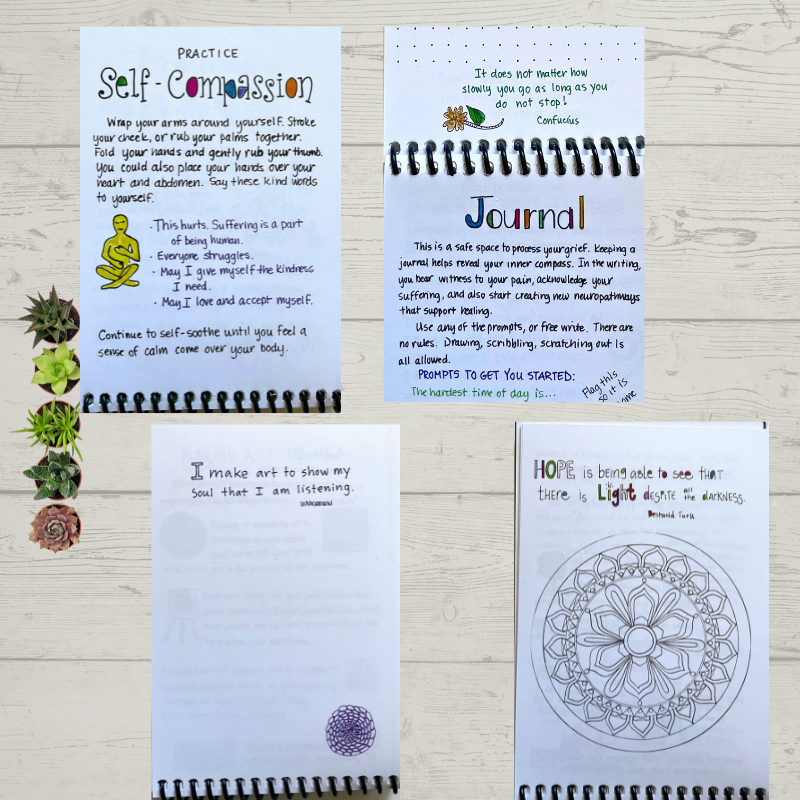 PRACTICE
Self-Compassion
Wrap your arms around yourself. Stroke
your cheek, or rub your palms together.
Fold your hands and gently rub your thumb.
You could also place your hands over your
heart and abdomen. Say these kind words
to yourself.
· This hurts. Suffering is a part
of being human.
· Everyone struggles.
· May I give myself the kindness
I need.
· May I love and accept myself.
Continue to self-soothe until you feel a
sense of calm come over your body.
It does not matter how
slowly you go as long as you
do not stop!
Confucius
Journal
This is a safe space to process your grief. Keeping a
journal helps reveal your inner compass. In the writing,
you bear witness to your pain, acknowledge your
suffering, and also start creating new neuropathways
that support healing.
Use any of the prompts, or free write. There are
no rules. Drawing, scribbling, scratching out is
all allowed.
PROMPTS TO GET YOU STARTED:
The hardest time of day is...
Flag this
so it is
I make art to show my
soul that I am listening.
UNKNOWN
HOPE is being able to see THAT
THERE is Light DESPITE all the DARKNESS.
Desmond Tutu